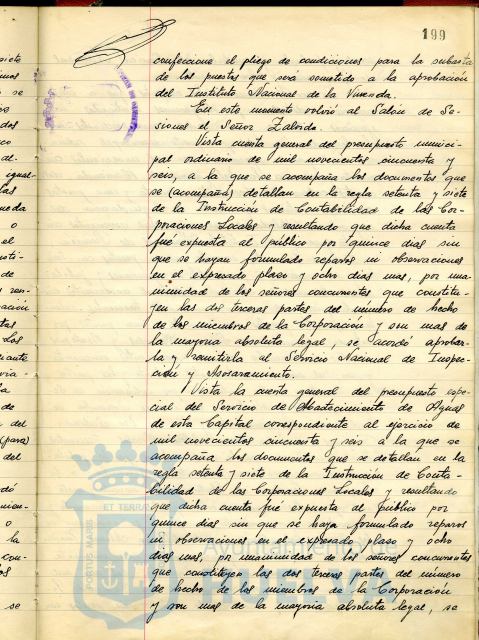 199
confeccione el pliego de condiciones para la subasta
de los puestos que será sometido a la aprobación
del Instituto Nacional de la Vivienda.
En este momento volvió al Salón de Se-
siones el Señor Zalvide.
Vista cuenta general del presupuesto munici-
pal ordinario de mil novecientos cincuenta y
seis, a la que se acompaña los documentos que
se (acompaña) detallan en la regla setenta y siete
de la Instrucción de Contabilidad de las Cor-
poraciones Locales y resultando que dicha cuenta
fué expuesta al público por quince dias sin
que se hayan formulado reparos ni observaciones
en el expresado plazo y ocho dias mas, por una-
nimidad de los señores concurrentes que constitu-
yen las dos terceras partes del número de hecho
de los miembros de la Corporación y son mas de
la mayoria absoluta legal, se acordó aprobar-
la y remitirla al Servicio Nacional de Inspec-
ción y Asesoramiento.
Vista la cuenta general del presupuesto espe-
cial del Servicio de Abastecimiento de Aguas
de esta Capital correspondiente al ejercicio de
mil novecientos cincuenta y seis a la que se
acompaña los documentos que se detallan en la
regla setenta y siete de la Instrucción de Conta-
bilidad de las Corporaciones Locales y resultando
que dicha cuenta fué expuesta al público por
quince dias sin que se haya formulado reparos
ni observaciones en el expresado plazo y ocho
dias mas, por unanimidad de los señores concurrentes
que constituyen las dos terceras partes del número
de hecho de los miembros de la Corporación
y son mas de la mayoria absoluta legal, se
PORTUS MARIS ET TERRAE